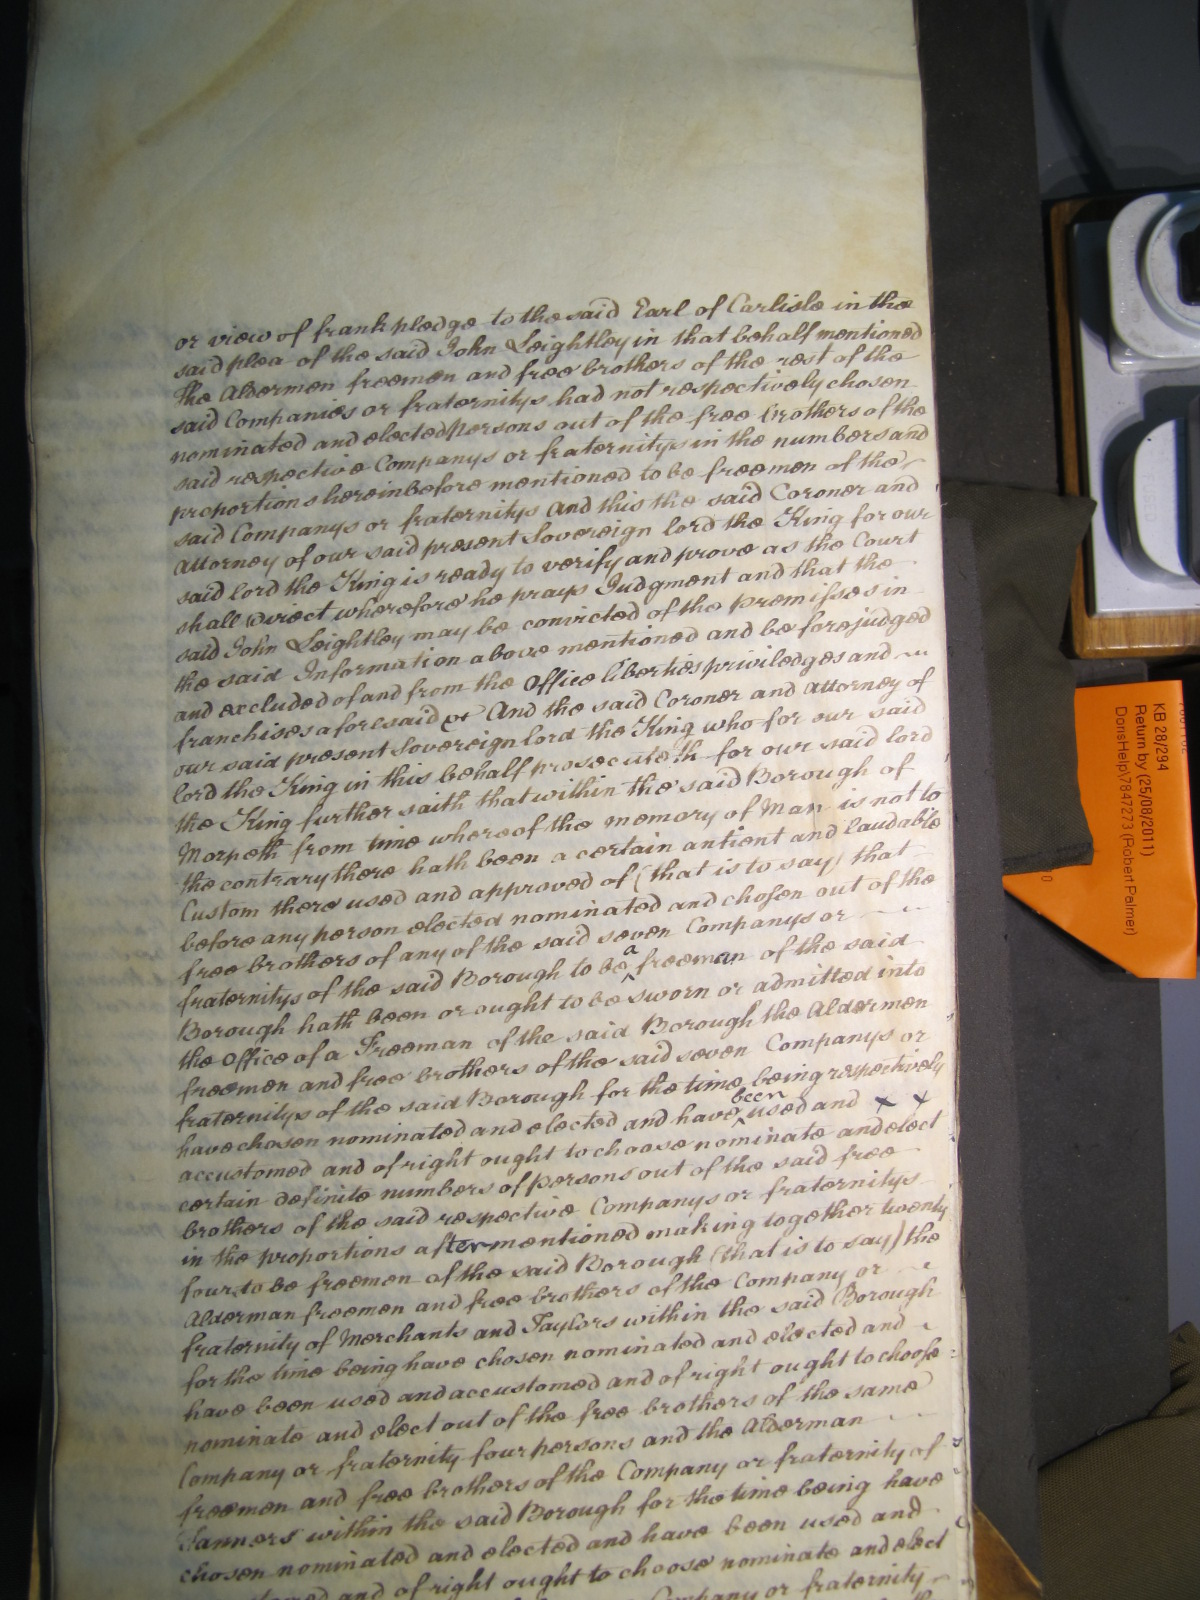 or view of frankpledge to the said Earl of Carlisle in the
said plea of the said John Leightley in that behalf mentioned
the Aldermen freemen and free brothers of the rest of the
said Companies or fraternitys had not respectively chosen
nominated and elected persons out of the free brothers of the
said respective Companys or fraternitys in the numbers and
proportions hereinbefore mentioned to be freemen of the
said Companys or fraternitys And this the said Coroner and
attorney of our said present Sovereign lord the King for our
said lord the King is ready to verify and prove as the Court
shall direct wherefore he prays Judgment and that the
said John Leightley may be convicted of the premisses in
the said Information above mentioned and be forejudged
and excluded of and from the Office liberties priviledges and
franchises aforesaid &c And the said Coroner and attorney of
our said present Sovereign lord the King who for our said
lord the King in this behalf prosecuteth for our said lord
the King further saith that within the said Borough of
Morpeth from time whereof the memory of Man is not to
the contrary there hath been a certain antient and laudable
Custom there used and approved of (that is to say) that
before any person elected nominated and chosen out of the
free brothers of any of the said seven Companys or
fraternitys of the said Borough to be a freeman of the said
Borough hath been or ought to be sworn or admitted into
the Office of a Freeman of the said Borough the Aldermen
freemen and free brothers of the said seven Companys or
fraternitys of the said Borough for the time being respectively
have chosen nominated and elected and have been used and x x
accustomed and of right ought to choose nominate and elect
certain definite numbers of persons out of the said free
brothers of the said respective Companys or fraternitys
in the proportions aftermentioned making together twenty
four to be freemen of the said Borough (that is to say) the
Alderman freemen and free brothers of the Company or
fraternity of Merchants and Taylors within the said Borough
for the time being have chosen nominated and elected and
have been used and accustomed and of right ought to choose
nominate and elect out of the free brothers of the same
Company or fraternity four persons and the Alderman
freemen and free brothers of the Company or fraternity of
Tanners within the said Borough for the time being have
chosen nominated and elected and have been used and
and of right ought to choose nominate and elect
Company or fraternity
KB 28/294
Return by (25/08/2011)
DorisHelp\7847273 (Robert Palmer)